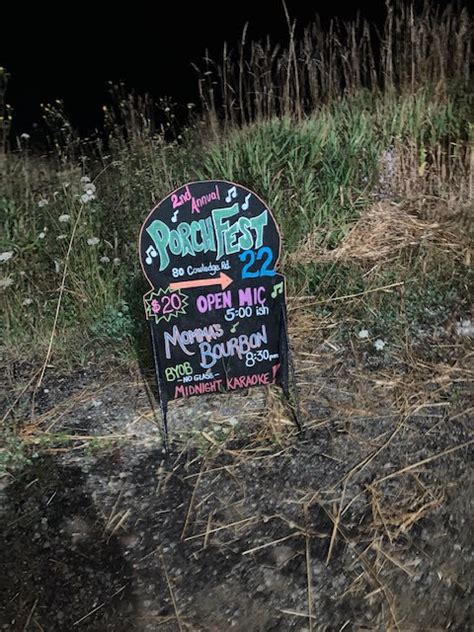 2nd Annual
PORCHFEST
80 Cowledge Rd.
22
$20
OPEN MIC
5:00 ish
MOMMA'S
BOURBON
8:30pm
BYOB
-NO GLASS-
MIDNIGHT KARAOKE!